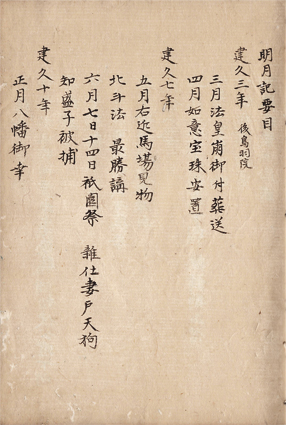 明月記要目
建久三年 後鳥羽院
三月法皇崩御付葬送
四月如意宝珠安置
建久七年
五月右近馬場見物
北斗法 最勝講
六月七日十四日祇園祭 雑仕妻戸天狗
知盛子被捕
建久十年
正月八幡御幸